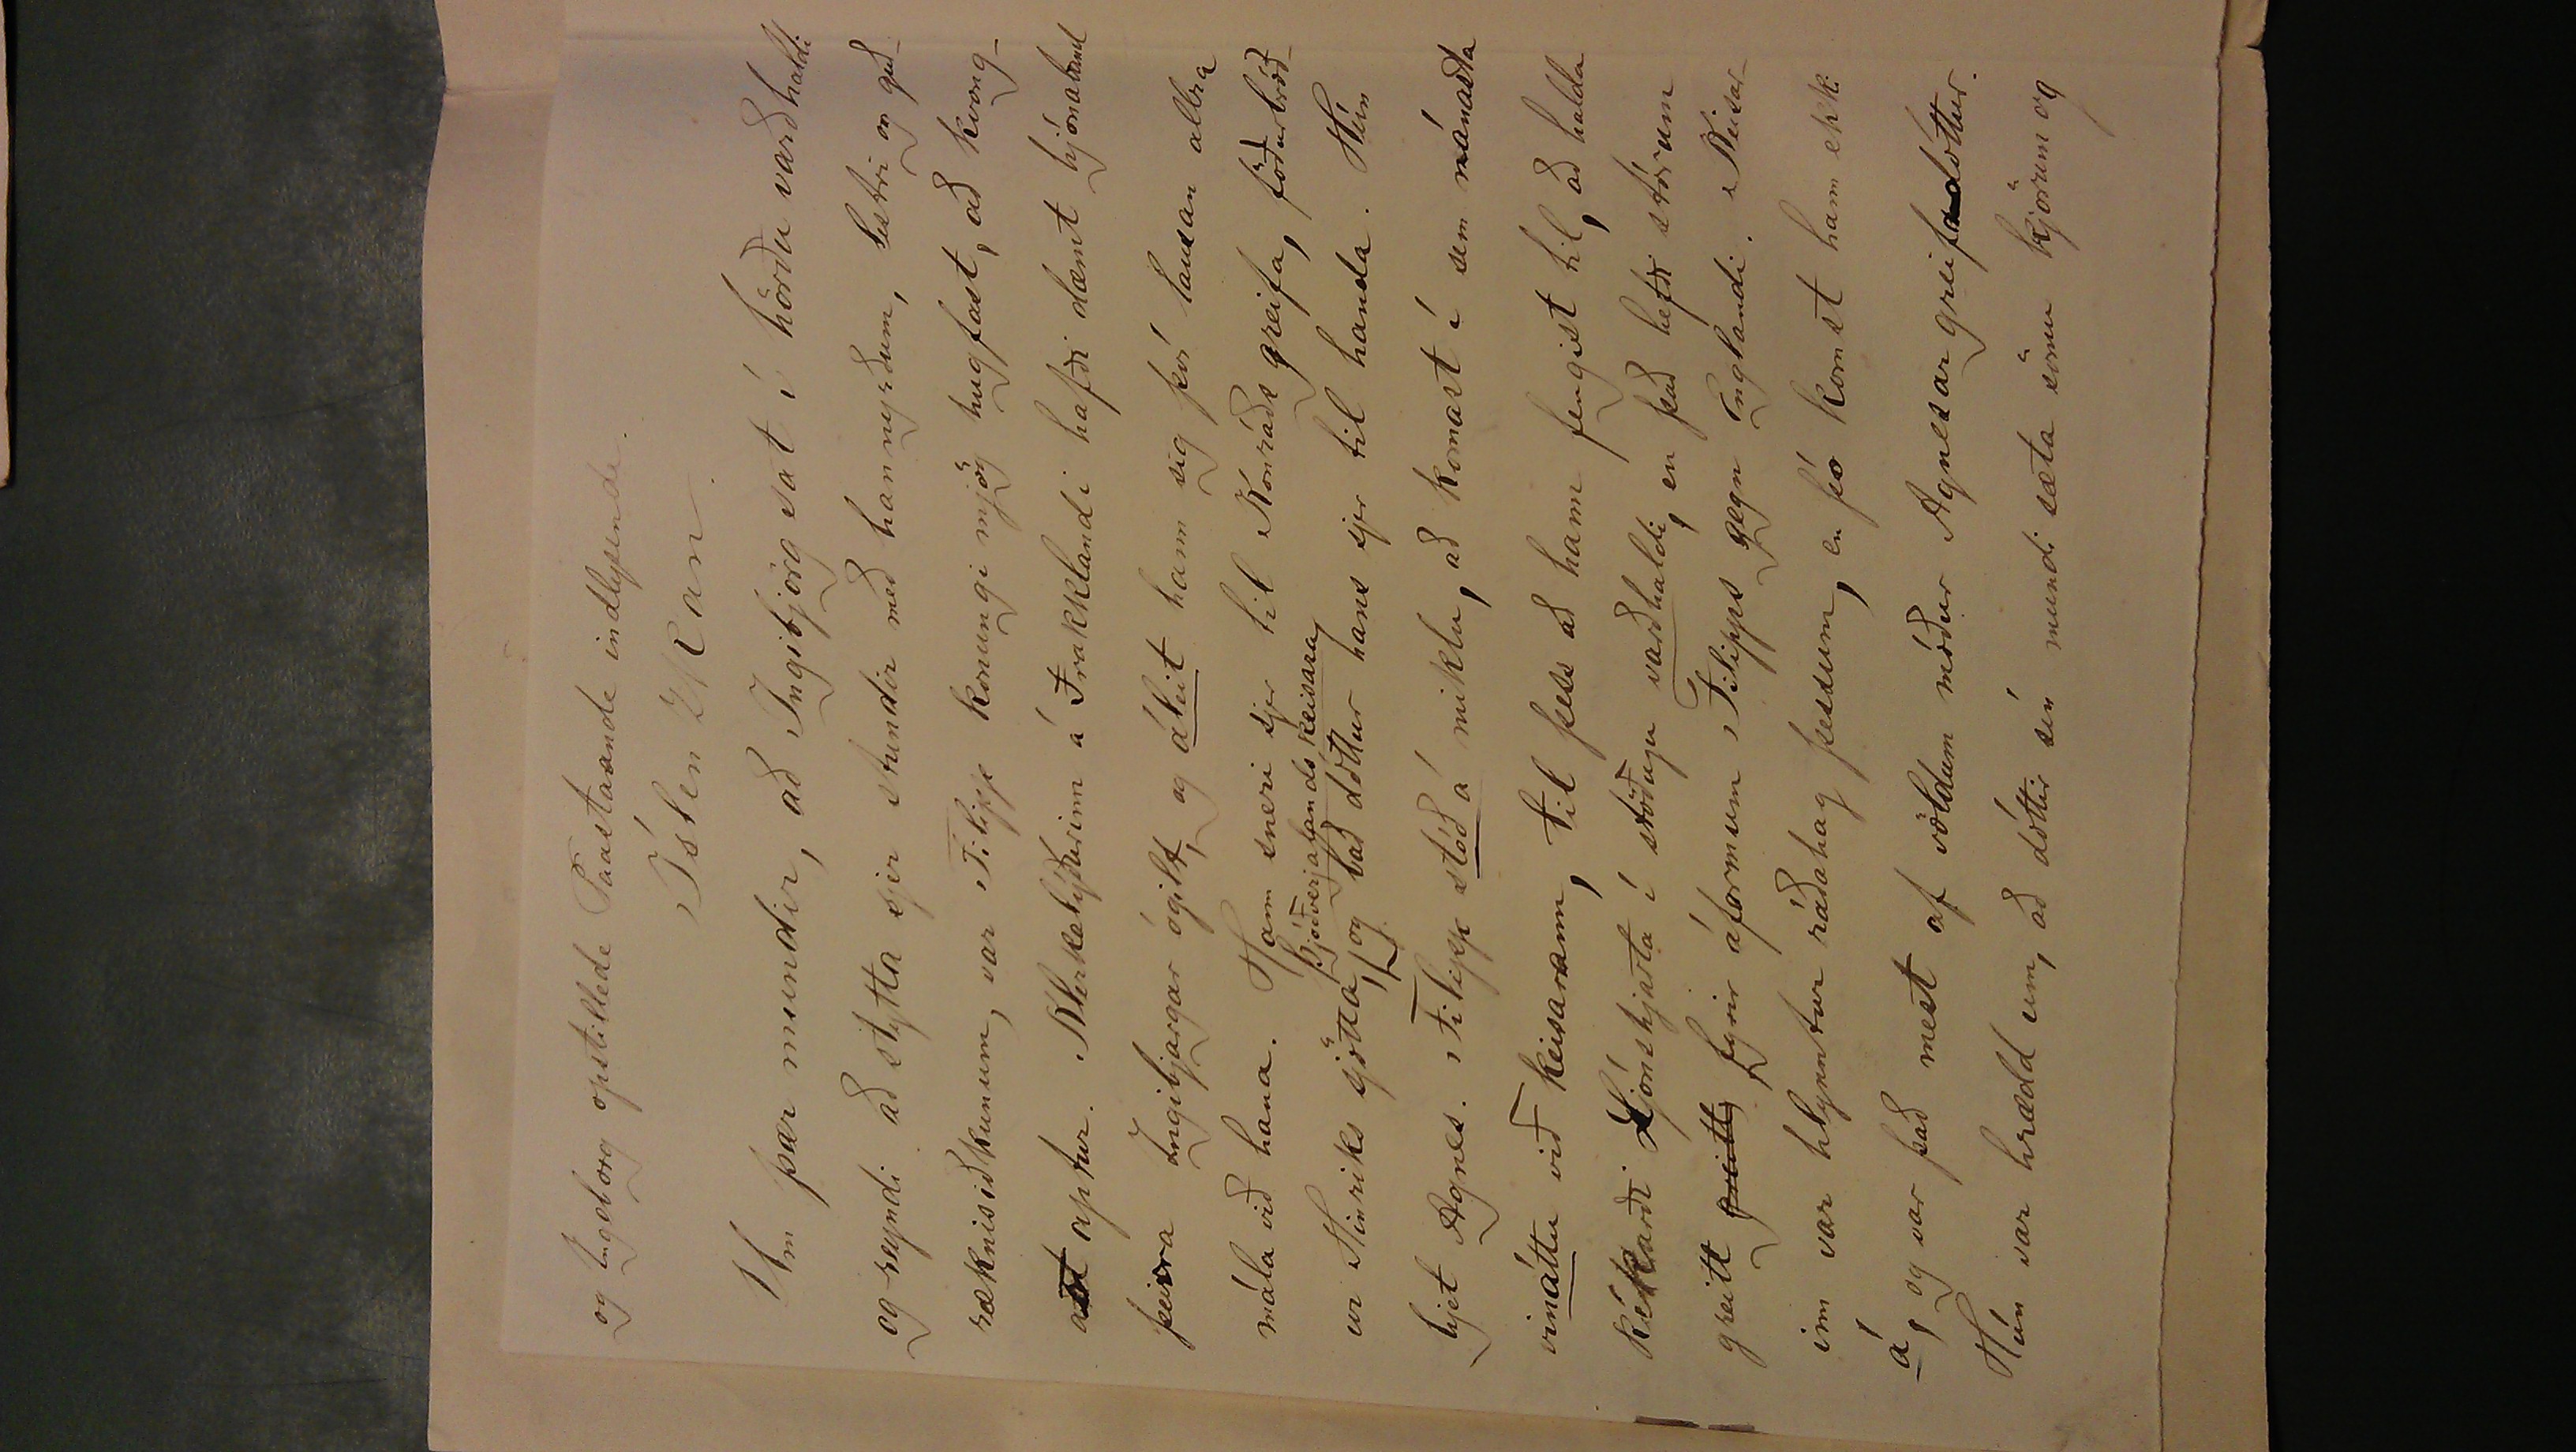 og Ingeborg opstillede Paastaande indlysende.
Íslenzkan
Um þær mundir, að Ingibjörg sat í hörðu varðhaldi
og reyndi að stytta sjer stundir með hannyrðum, lestri og guð-
ræknisiðkunum, var Filipp konungi mjög hugfast, að kvong-
ast aptur. Klerkalýðurinn á Frakklandi hafði dæmt hjónaband
þeirra Ingibjargar ógilt, og áleit hann sig því lausan allra
mála við hana. Hann sneri sjer til Konráðs greifa, föðurbróð-
ur Hinriks sjötta, Þjóðverjalands keisara, og bað dóttur hans sjer til handa. Hún
hjet Agnes. Filipp stóð á miklu, að komast í sem nánasta
vináttu við keisarann, til þess að hann fengist til, að halda
Ríkarði Ljónshjarta í stöðugu varðhaldi, en það hefði stórum
greitt greitt fyrir áformum Filipps gegn Englandi. Keisar-
inn var hlynntur ráðahag þessum, en þó komst hann ekki
á, og var það mest af völdum móður Agnesar greifadóttur.
Hún var hrædd um, að dóttir sín mundi sæta sömu kjörum og